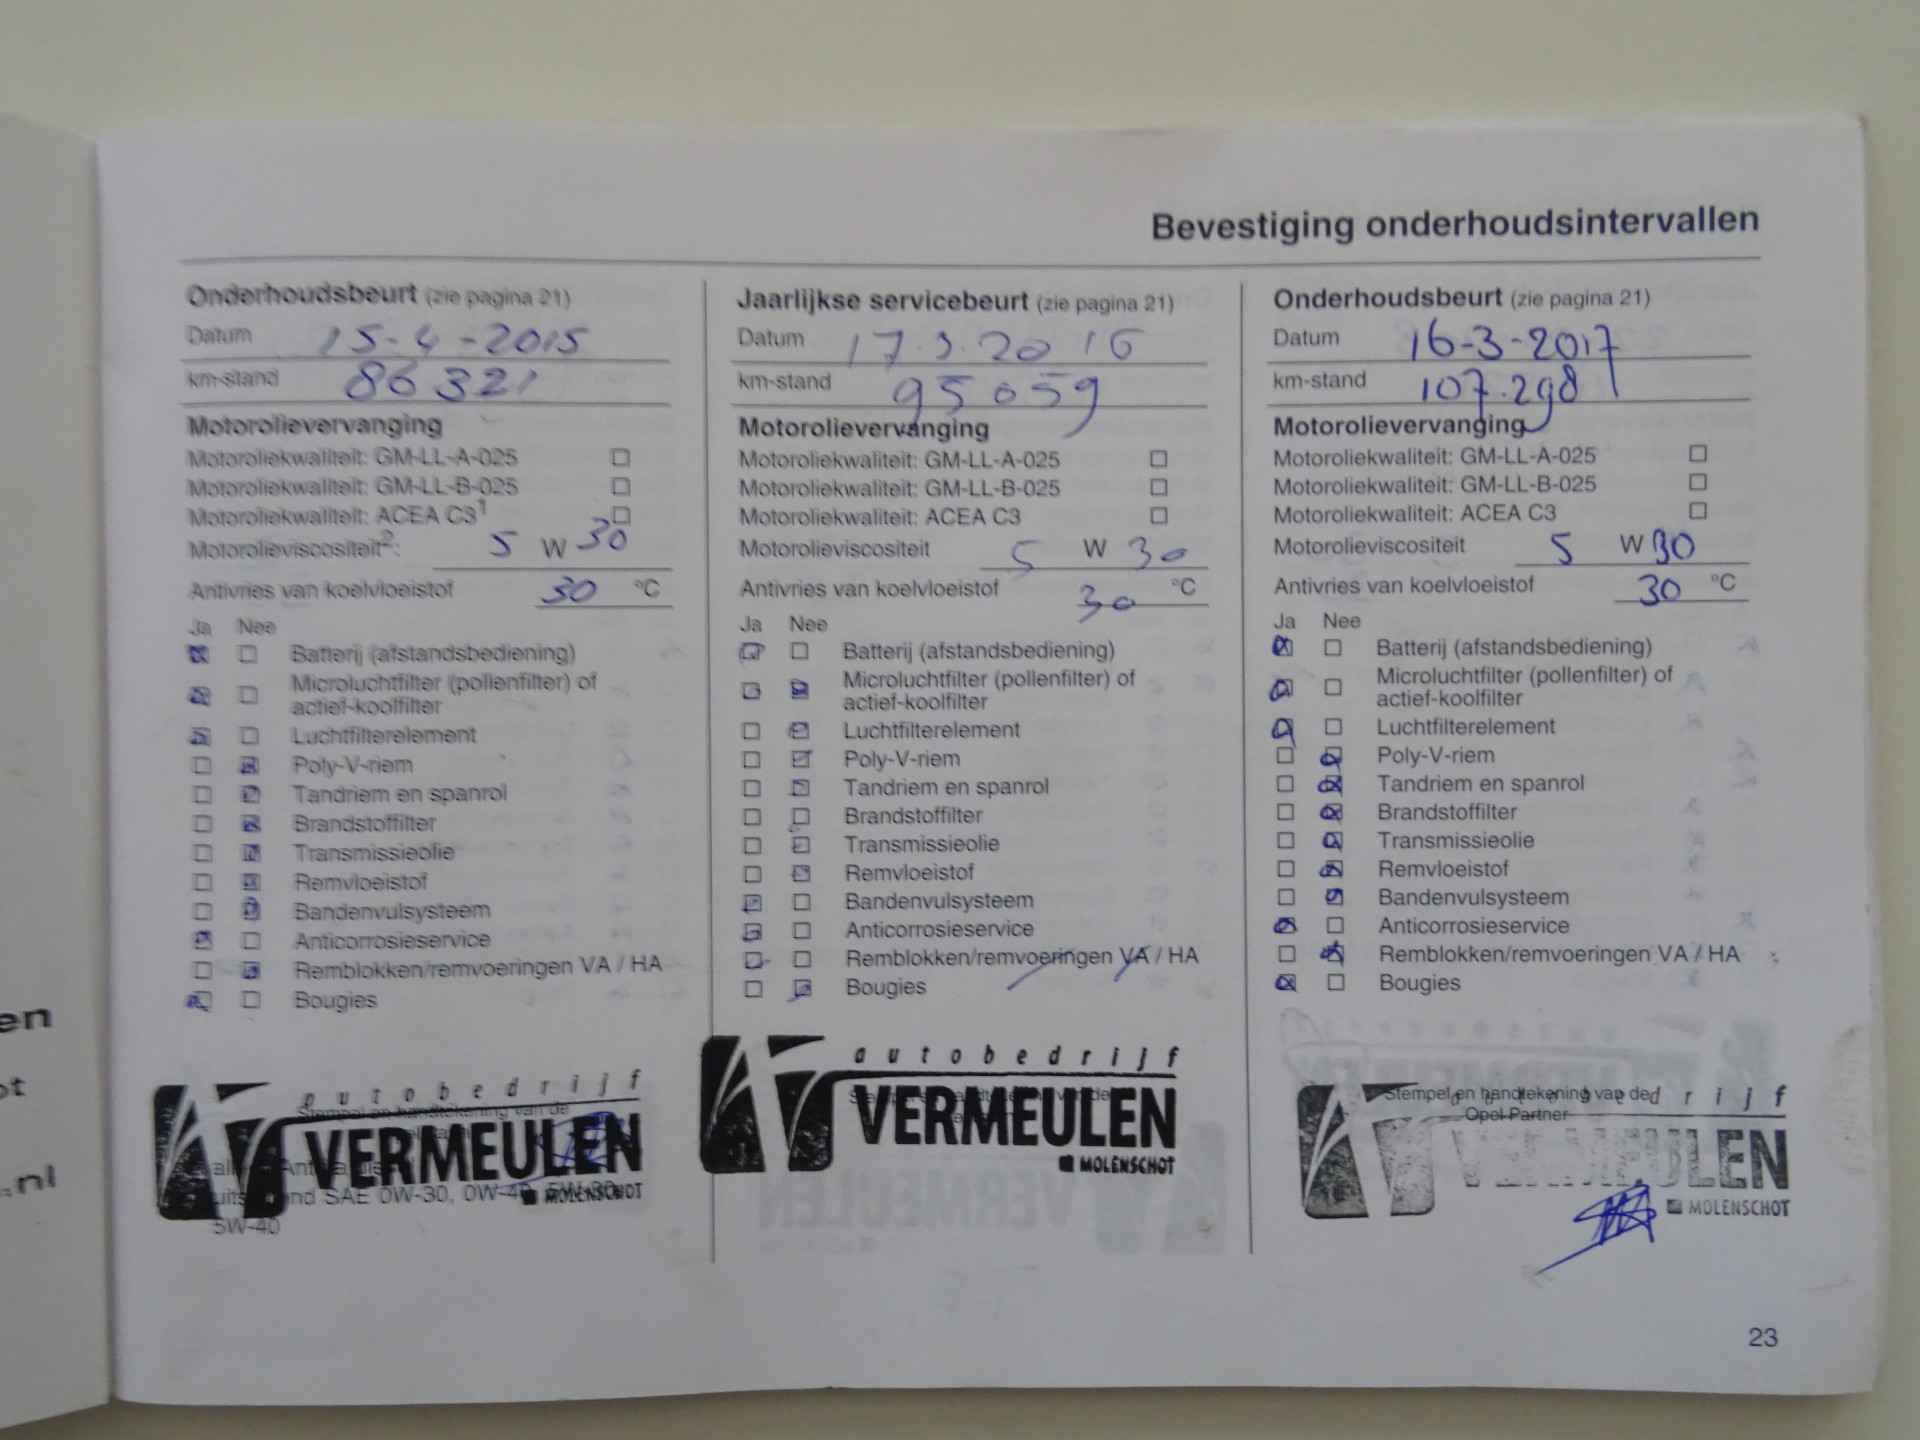 Bevestiging onderhoudsintervallen
Onderhoudsbeurt (zie pagina 21)
Datum 15-4-2015
km-stand 86321
Motorolievervanging
Motoroliekwaliteit: GM-LL-A-025
Motoroliekwaliteit: GM-LL-B-025
Motoroliekwaliteit: ACEA C3¹
Motorolieviscositeit²: 5 W 30
Antivries van koelvloeistof 30 °C
Ja Nee
Batterij (afstandsbediening)
Microluchtfilter (pollenfilter) of
actief-koolfilter
Luchtfilterelement
Poly-V-riem
Tandriem en spanrol
Brandstoffilter
Transmissieolie
Remvloeistof
Bandenvulsysteem
Anticorrosieservice
Remblokken/remvoeringen VA / HA
Bougies
autobedrijf
Stempel en handtekening van de
VERMEULEN
MOLENSCHOT
SAE 0W-30, 0W-40, 5W-30
5W-40
Jaarlijkse servicebeurt (zie pagina 21)
Datum 17.3.2016
km-stand 95059
Motorolievervanging
Motoroliekwaliteit: GM-LL-A-025
Motoroliekwaliteit: GM-LL-B-025
Motoroliekwaliteit: ACEA C3
Motorolieviscositeit 5 W 30
Antivries van koelvloeistof 30 °C
Ja Nee
Batterij (afstandsbediening)
Microluchtfilter (pollenfilter) of
actief-koolfilter
Luchtfilterelement
Poly-V-riem
Tandriem en spanrol
Brandstoffilter
Transmissieolie
Remvloeistof
Bandenvulsysteem
Anticorrosieservice
Remblokken/remvoeringen VA / HA
Bougies
autobedrijf
VERMEULEN
MOLENSCHOT
Onderhoudsbeurt (zie pagina 21)
Datum 16-3-2017
km-stand 107.298
Motorolievervanging
Motoroliekwaliteit: GM-LL-A-025
Motoroliekwaliteit: GM-LL-B-025
Motoroliekwaliteit: ACEA C3
Motorolieviscositeit 5 W 30
Antivries van koelvloeistof 30 °C
Ja Nee
Batterij (afstandsbediening)
Microluchtfilter (pollenfilter) of
actief-koolfilter
Luchtfilterelement
Poly-V-riem
Tandriem en spanrol
Brandstoffilter
Transmissieolie
Remvloeistof
Bandenvulsysteem
Anticorrosieservice
Remblokken/remvoeringen VA / HA
Bougies
Stempel en handtekening van de
Opel Partner
VERMEULEN
MOLENSCHOT
23
en
ot
.nl